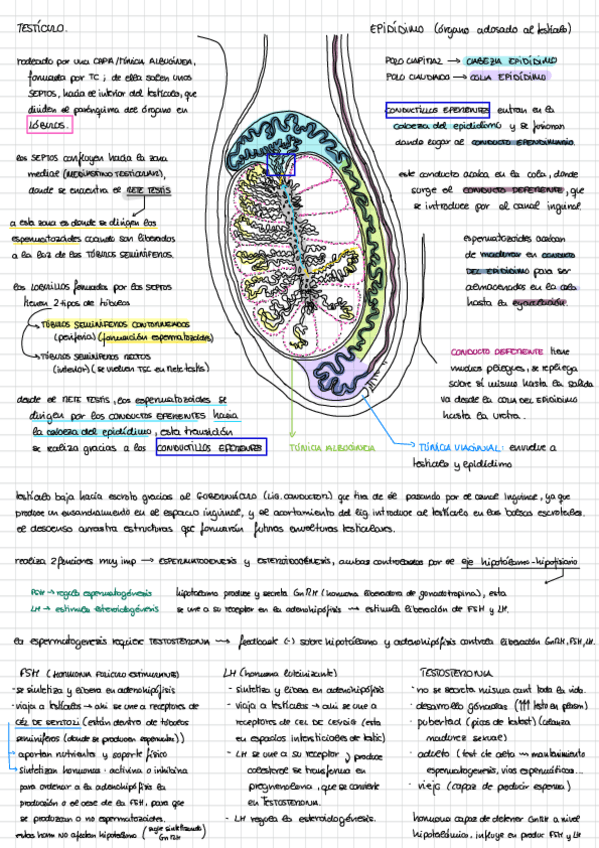 TESTÍCULO.
rodeado por una CAPA/TÚNICA ALBUGÍNEA,
formada por TC ; de ella salen unos
SEPTOS, hacia el interior del testículo, que
dividen el parénquima del órgano en
LÓBULOS.
los SEPTOS confluyen hacia la zona
medial (MEDIASTINO TESTICULAR),
donde se encuentra el RETE TESTIS
a esta zona es donde se dirigen los
espermatozoides cuando son liberados
a la luz de los TÚBULOS SEMINÍFEROS.
los LOBULILLOS formados por los SEPTOS
tienen 2 tipos de túbulos
TÚBULOS SEMINÍFEROS CONTORNEADOS
(periferia) (formación espermatozoides)
TÚBULOS SEMINÍFEROS RECTOS
(interior) (se vuelven TSC en rete testis)
desde el RETE TESTIS, los espermatozoides se
dirigen por los CONDUCTOS EFERENTES hacia
la cabeza del epidídimo, esta transición
se realiza gracias a los CONDUCTILLOS EFERENTES
TÚNICA ALBUGÍNEA
EPIDÍDIMO (órgano adosado al testículo)
POLO CAPITAL → CABEZA EPIDÍDIMO
POLO CAUDADO → COLA EPIDÍDIMO
CONDUCTILLOS EFERENTES entran en la
cabeza del epidídimo y se fusionan
dando lugar al CONDUCTO EPIDIDIMARIO.
este conducto acaba en la cola, donde
surge el CONDUCTO DEFERENTE, que
se introduce por el canal inguinal.
espermatozoides acaban
de madurar en CONDUCTO
DEL EPIDÍDIMO para ser
almacenados en la cola
hasta la eyaculación.
CONDUCTO DEFERENTE tiene
muchos pliegues, se repliega
sobre sí mismo hasta la salida
va desde la COLA DEL EPIDÍDIMO
hasta la uretra.
TÚNICA VAGINAL: envuelve a
testículo y epidídimo
testículo baja hacia escroto gracias al GUBERNÁCULO (LIG. CONDUCTOR) que tira de él pasando por el canal inguinal, ya que
produce un ensanchamiento en el espacio inguinal, y el acortamiento del lig. introduce al testículo en las bolsas escrotales.
el descenso arrastra estructuras que formarán futuras envolturas testiculares.
realiza 2 funciones muy imp → ESPERMATOGÉNESIS y ESTEROIDOGÉNESIS, ambas controladas por el eje hipotálamo-hipofisiario
FSH → regula espermatogénesis
LH → estimula esteroidogénesis
hipotálamo produce y secreta GnRH (hormona liberadora de gonadotropina), esta
se une a su receptor en la adenohipófisis → estimula liberación de FSH y LH.
la espermatogénesis requiere TESTOSTERONA → feedback (-) sobre hipotálamo y adenohipófisis controla liberación GnRH, FSH, LH.
FSH (HORMONA FOLÍCULO ESTIMULANTE)
- se sintetiza y libera en adenohipófisis
- viaja a testículos → ahí se une a receptores de
CÉL DE SERTOLI (están dentro de túbulos
seminíferos (donde se producen esperma))
→ aportan nutrientes y soporte físico
→ sintetizan hormonas · activina o inhibina
para ordenar a la adenohipófisis la
producción o el cese de la FSH, para que
se produzcan o no espermatozoides.
estas horm NO afectan hipotálamo (sigue sintetizando GnRH)
LH (hormona luteinizante)
- sintetiza y libera en adenohipófisis
- viaja a testículos → ahí se une a
receptores de CEL DE LEYDIG (esta
en espacios intersticiales de testíc)
- LH se une a su receptor y produce
colesterol se transforma en
pregnenolona, que se convierte
en TESTOSTERONA.
- LH regula la esteroidogénesis.
TESTOSTERONA
- no se secreta misma cant toda la vida.
- desarrollo gónadas (↑↑↑ testo en plasm)
- pubertad (picos de testost) (alcanza
madurez sexual)
- adulto (test de acta → mantenimiento
espermatogénesis, vías espermáticas...
- viejo (capaz de producir esperma)
hormona capaz de detener GnRH a nivel
hipotalámico, influye en produc FSH y LH